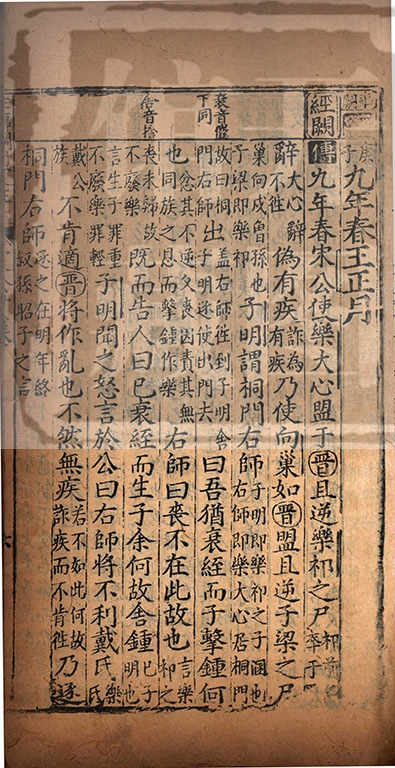 庚子九年春王正月
經闕傳九年春宋公使樂大心盟于晉且逆樂祁之尸
辭大心辭不往偽有疾詐為有疾乃使向巢如晉盟且逆子梁之尸
巢向戌曾孫也子梁即樂祁子明謂桐門右師子明即樂祁之子溷也右師即樂大心居桐門
衰音催下同
故曰桐門右師出蓋右師往到子明舍子明逐使出門去曰吾猶衰絰而子擊鍾何
也忿其不逆父喪因責其無同族之恩而擊鍾作樂右師曰喪不在此故也言樂祁之
舍音捨
喪未歸故不廢樂既而告人曰已衰絰而生子余何故舍鍾已子明也樂
言生子罪重不廢樂罪輕子明聞之怒言於公曰右師將不利戴氏樂氏
戴公族不肯適晉將作亂也不然無疾若不如此何故詐疾而不肯往乃逐
桐門右師逐之在明年終叔孫昭子之言